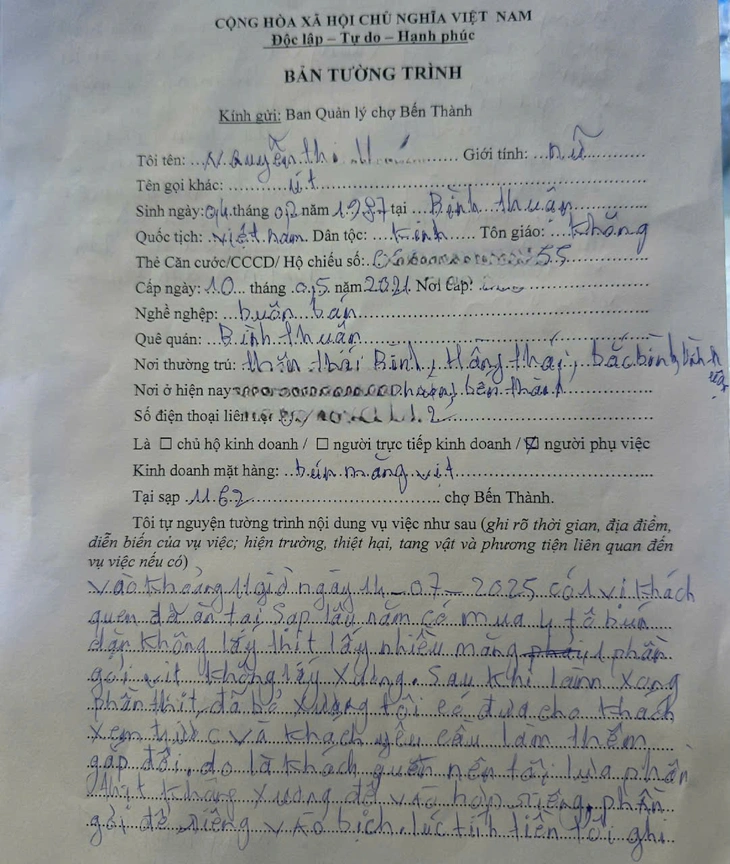 CỘNG HÒA XÃ HỘI CHỦ NGHĨA VIỆT NAM
Độc lập – Tự do – Hạnh phúc
BẢN TƯỜNG TRÌNH
Kính gửi: Ban Quản lý chợ Bến Thành
Tôi tên: Nguyễn thị Giới tính: nữ
Tên gọi khác: út
Sinh ngày: 04 tháng 02 năm 1987 tại Bình thuận
Quốc tịch: việt nam Dân tộc: kinh Tôn giáo: không
Thẻ Căn cước/CCCD/ Hộ chiếu số: 55
Cấp ngày: 10 tháng 05 năm 2021 Nơi cấp:
Nghề nghiệp: buôn bán
Quê quán: Bình thuận
Nơi thường trú: thôn thái Bình, Hồng thái, bắc bình, bình
Nơi ở hiện nay phường bến thành
Số điện thoại liên 2
Là ☐ chủ hộ kinh doanh / ☐ người trực tiếp kinh doanh / ☑ người phụ việc
Kinh doanh mặt hàng: bún măng vịt
Tại sạp 1162 chợ Bến Thành.
Tôi tự nguyện tường trình nội dung vụ việc như sau (ghi rõ thời gian, địa điểm,
diễn biến của vụ việc; hiện trường, thiệt hại, tang vật và phương tiện liên quan đến
vụ việc nếu có)
vào khoảng 11 giờ ngày 14 - 07 - 2025 có 1 vị khách
quen đã ăn tại Sạp lâu năm có mua 4 tô bún
dặn không lấy thịt lấy nhiều măng 1 phần
gỏi vịt không lấy xương. Sau khi làm xong
phần thịt đã bỏ xương tôi có đưa cho khách
xem trước và khách yêu cầu làm thêm
gấp đôi, do là khách quen nên tôi lựa phần
thịt không xương để vào hộp riêng, phần
gỏi để riêng vào bịch. lúc tính tiền tôi ghi